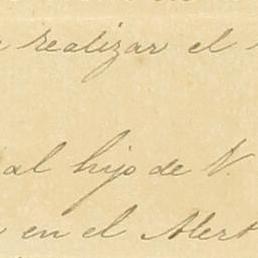 realizar el
al hijo de V.
en el Alert